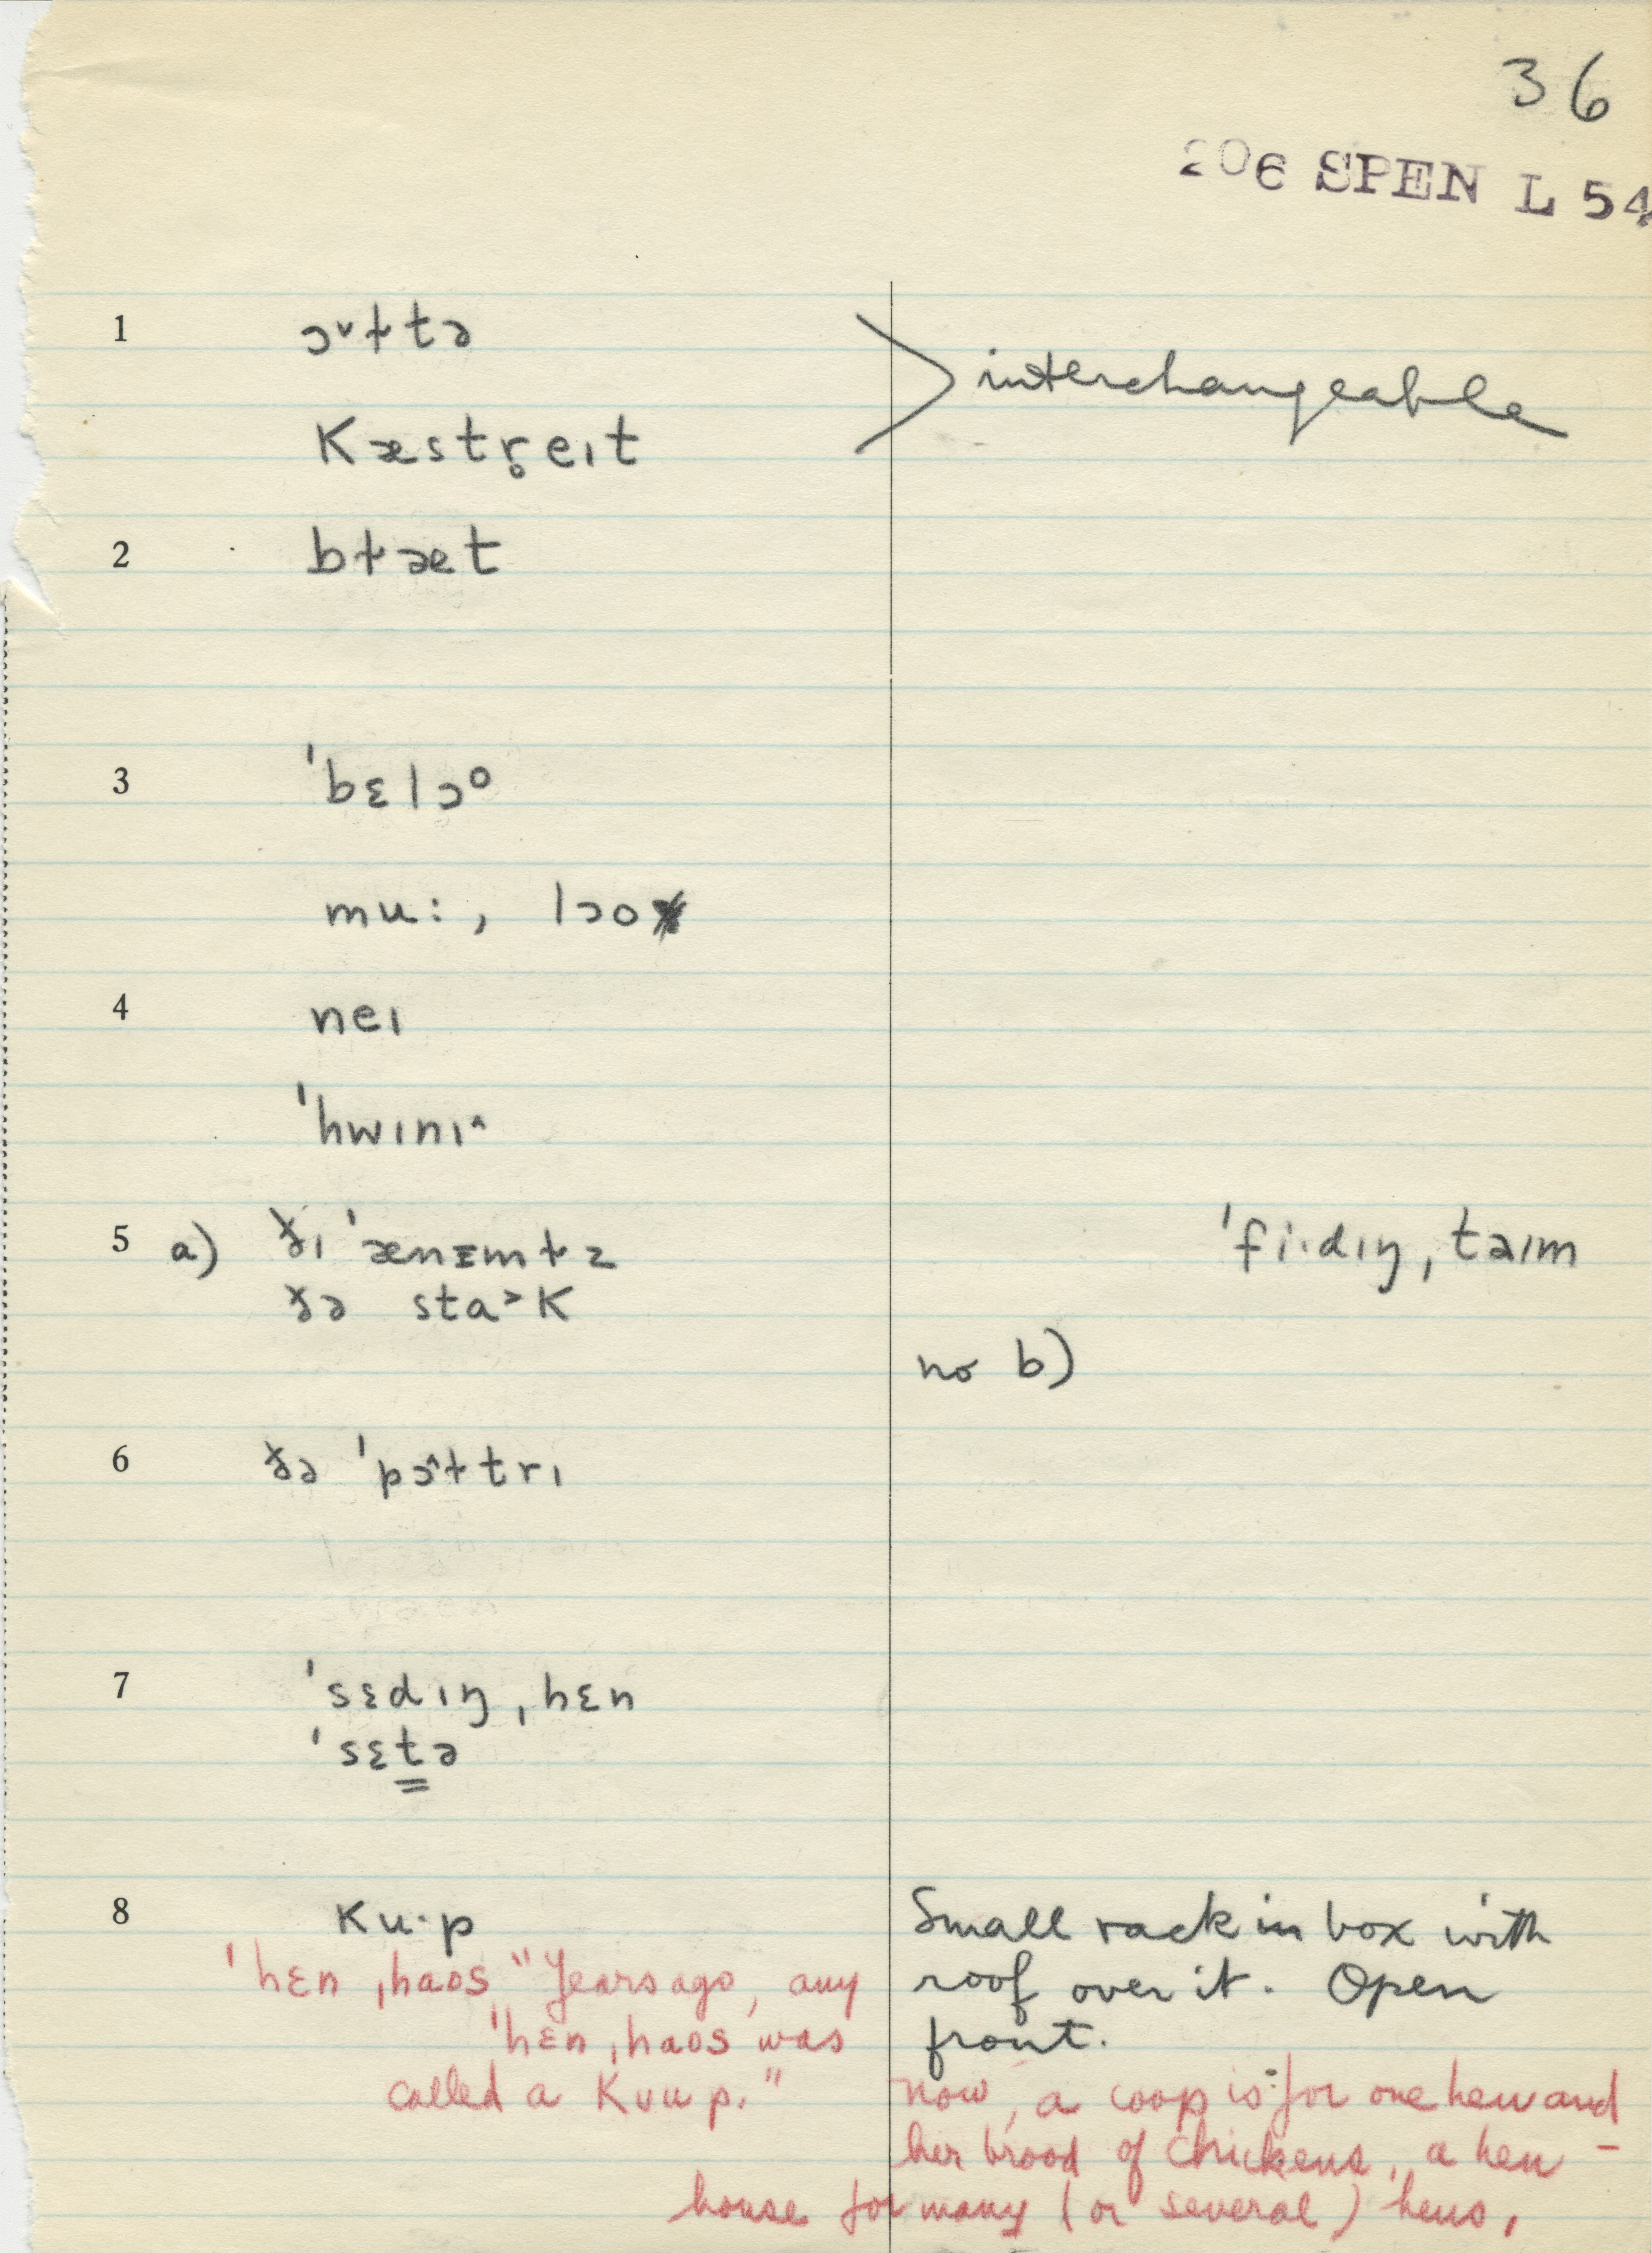 36
206 SPEN L 54
1 ɔ˅ɫtə
kæstr̥eɪt
> interchangeable
2 bɫæt
3 ˈbɛlɔᵒ
mu:, lɔo
4 neɪ
ˈhwɪnɪ^
5 a) ðɪ ˈænɪmɫz
ðə sta˃k
ˈfi·dɪŋ ˌtaɪm
no b)
6 ðə ˈpɔ^ɫtrɪ
7 ˈsɛdɪŋ ˌhɛn
ˈsɛtə
8 ku·p
Small rack in box with
roof over it. Open
front.
ˈhɛn ˌhaos "Years ago, any
ˈhɛn ˌhaos was
called a kuup."
now, a coop is for one hen and
her brood of chickens, a hen-
house for many (or several) hens.